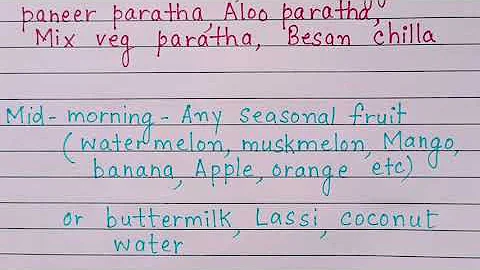 paneer paratha, Aloo paratha,
Mix veg paratha, Besan chilla
Mid-morning - Any seasonal fruit
(watermelon, muskmelon, Mango,
banana, Apple, orange etc)
or buttermilk, Lassi, coconut
water